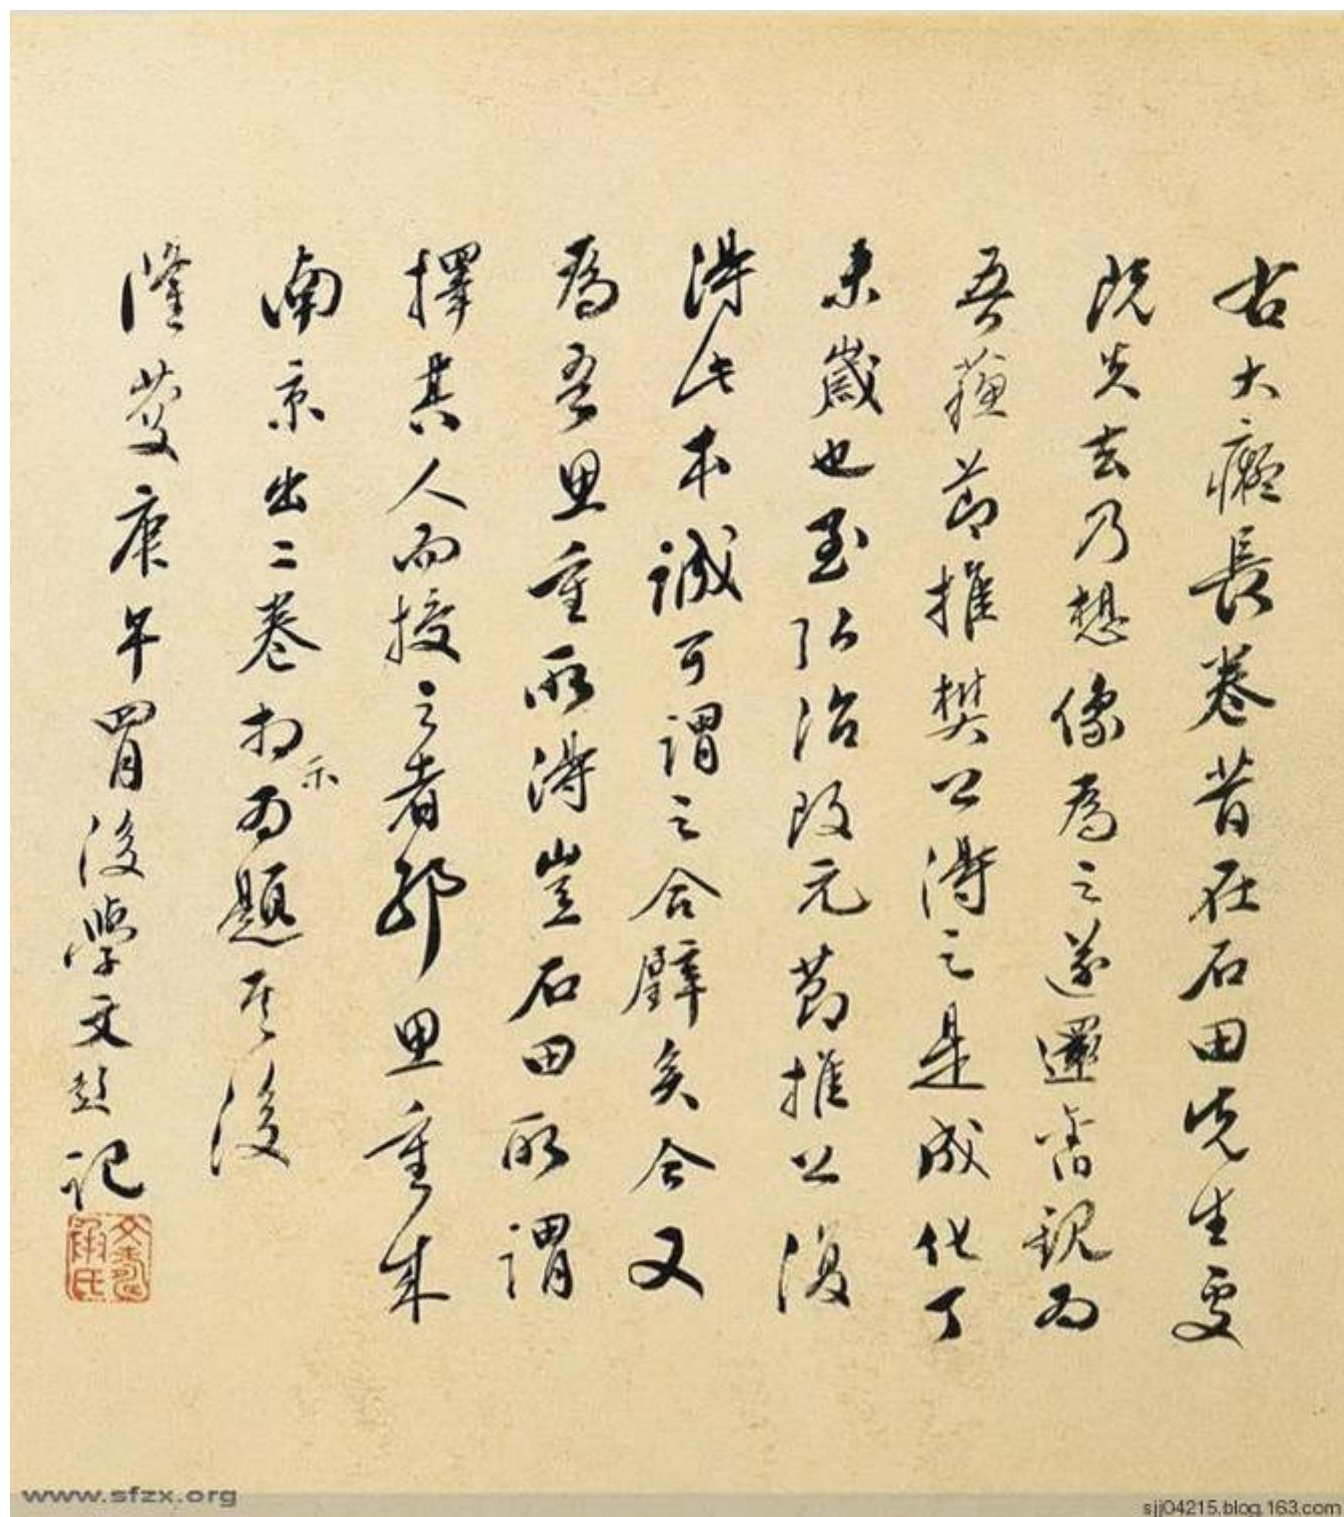 右大癡長卷昔在石田先生處
既失去乃想像為之遂還舊觀為
吾蘇節推樊公得之是成化丁
未歲也至弘治改元節推公復
得此本誠可謂之合璧矣今又
為吾思重所得豈石田所謂
擇其人而授之者耶思重來
南京出二卷相示為題其後
隆慶庚午四月後學文彭記
www.sfzx.org
sjj04215.blog.163.com